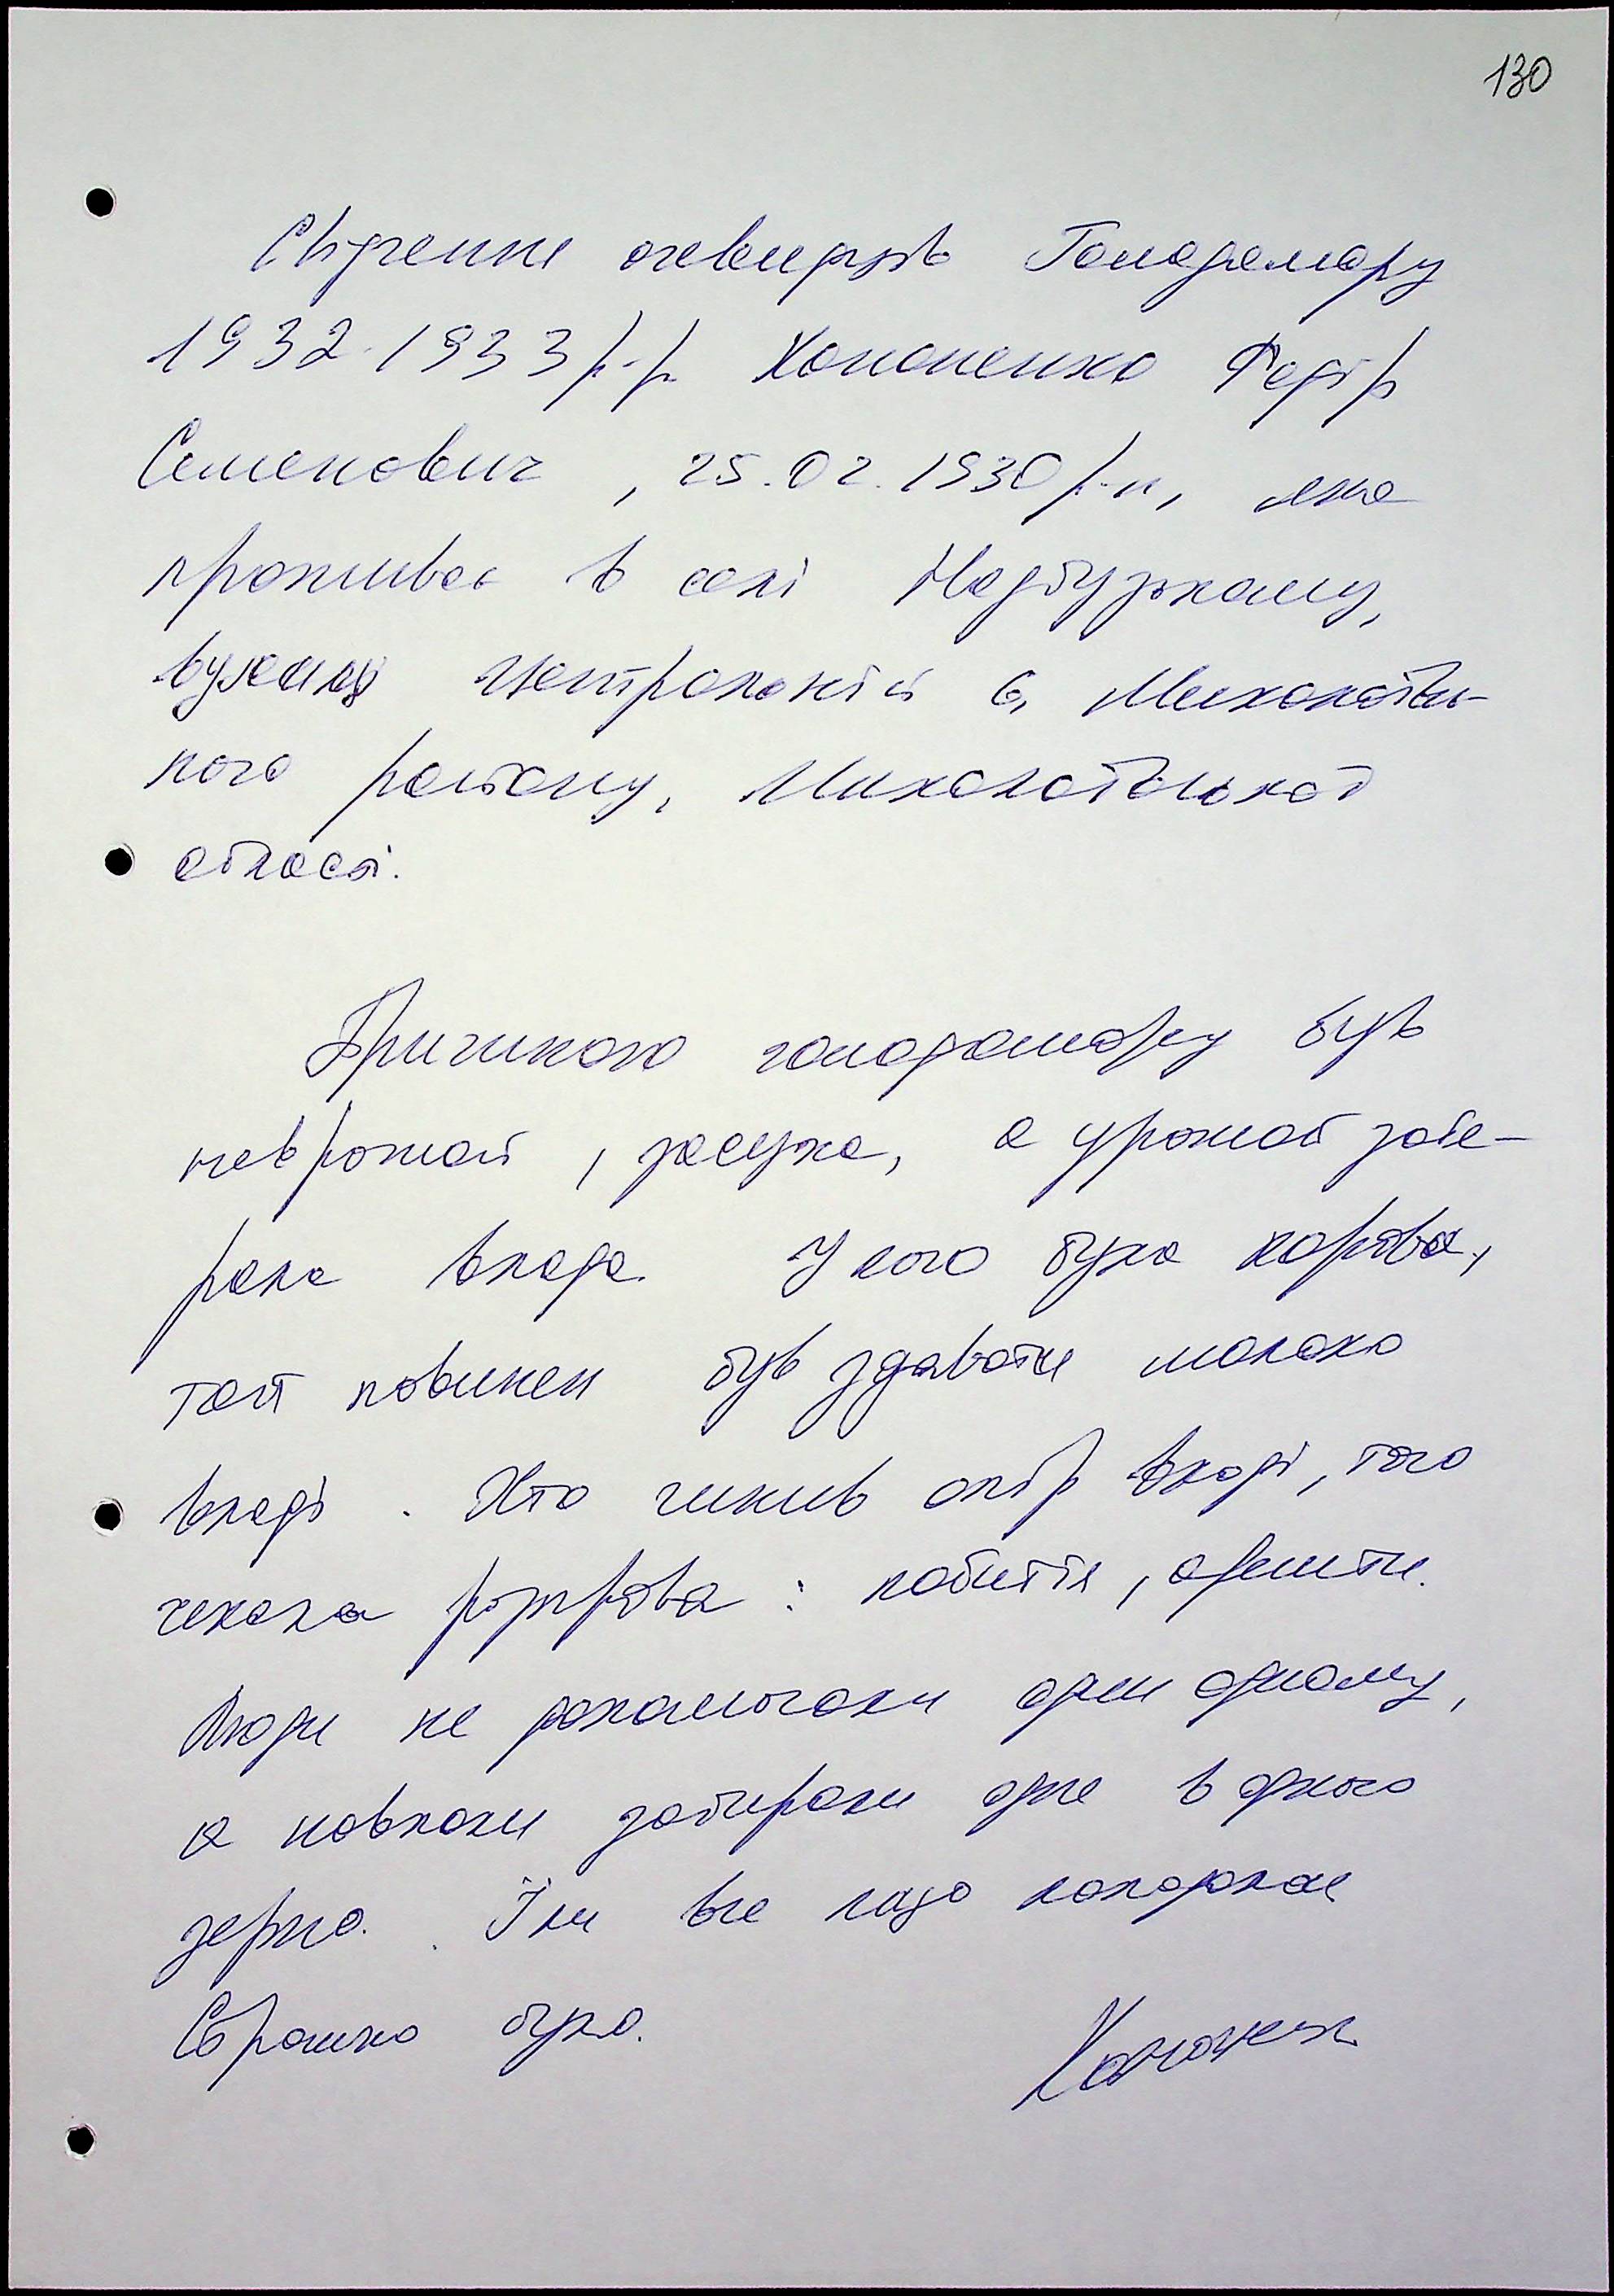 130
Свідчення очевидців Голодомору
1932-1933 р.р. Кононенко Федір
Семенович, 25.02.1930 р.н, яка
проживає в селі Надбузькому,
вулиця Центральній 6, Миколаївсь-
кого району, Миколаївської
області.
Причиною голодомору був
неврожай, засуха, а урожай заби-
рала влада. У кого була корова,
той повинен був здавати молоко
владі. Хто чинив опір владі, того
чекала розправа: побиття, арешти.
Люди не допомагали один одному,
а навпаки забирали одне в одного
зерно. Їли все що попадало
Страшно було.